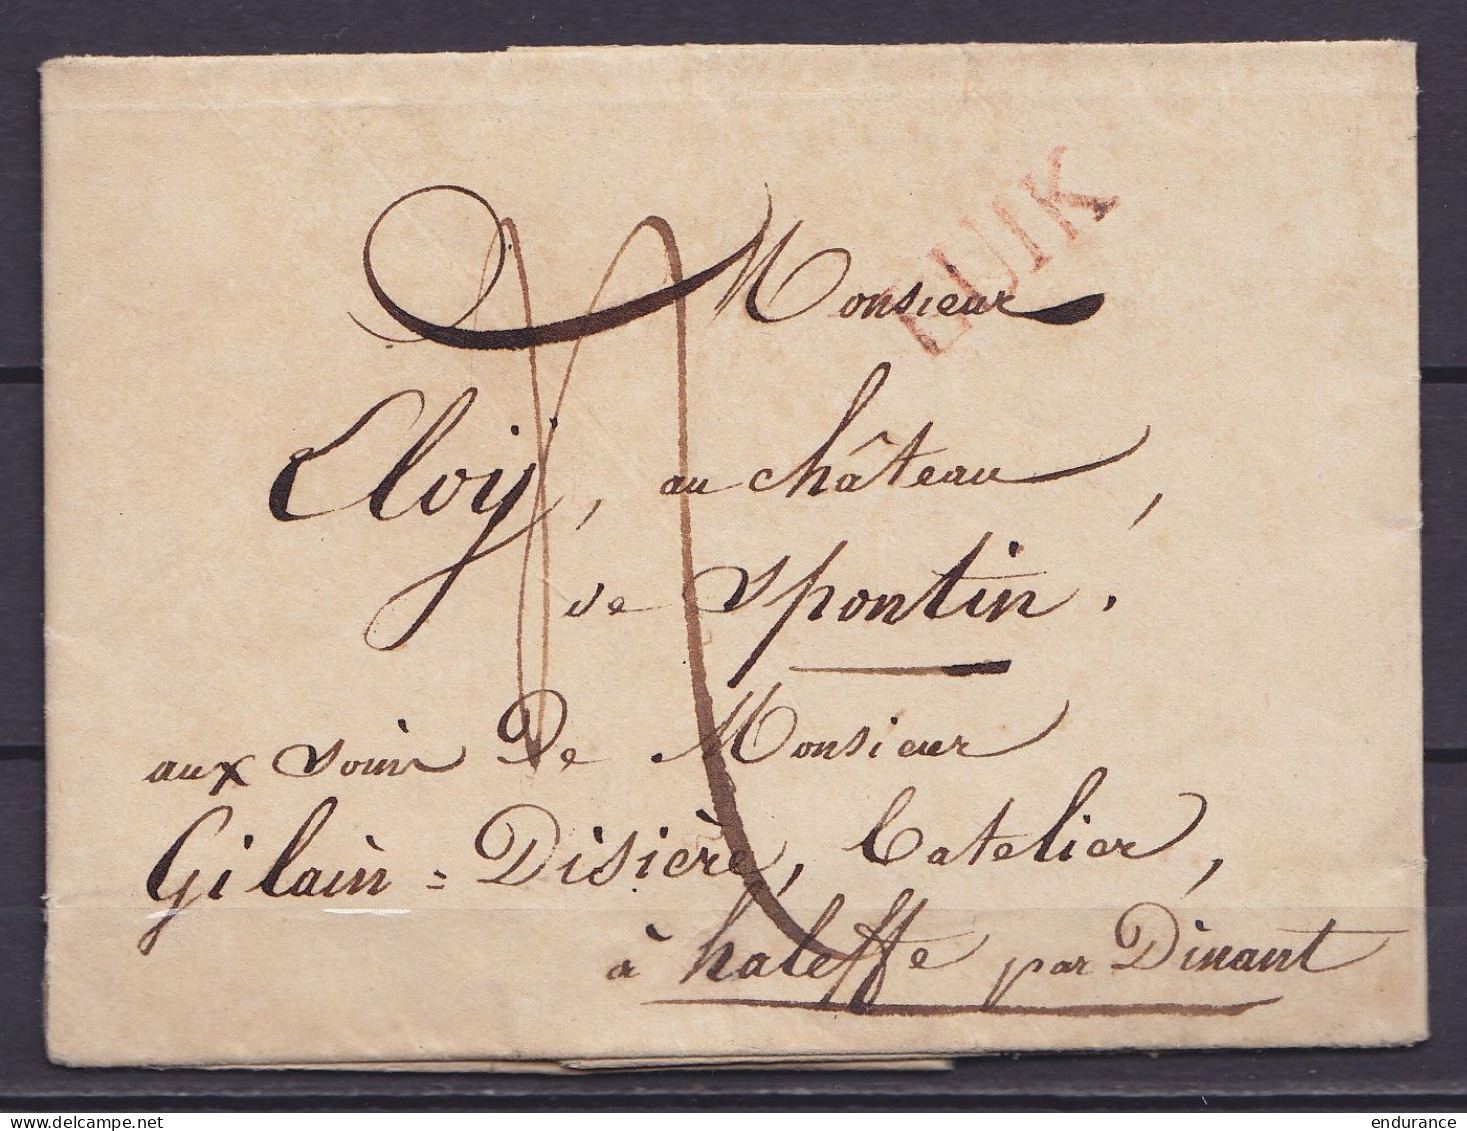 LUIK
Monsieur
Eloÿ, au château,
de Spontin.
aux soins De Monsieur
Gilain = Disière, Batelier,
à haleffe par Dinant
endurance
www.delcampe.net